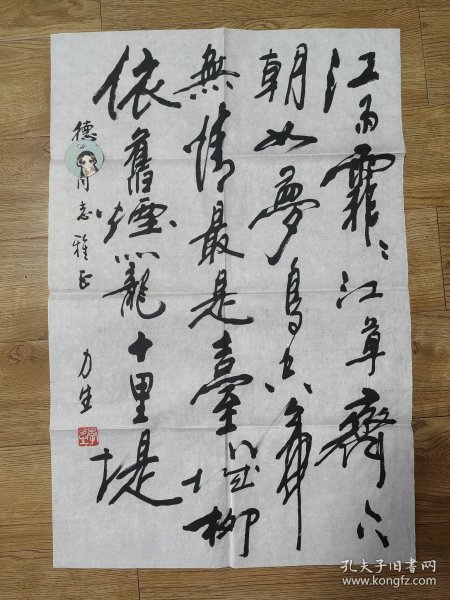 江雨霏霏江草齊六
朝如夢鳥空啼
無情最是臺城柳
依舊煙籠十里堤
德
同志雅正
力生
孔夫子旧书网
www.kongfz.com